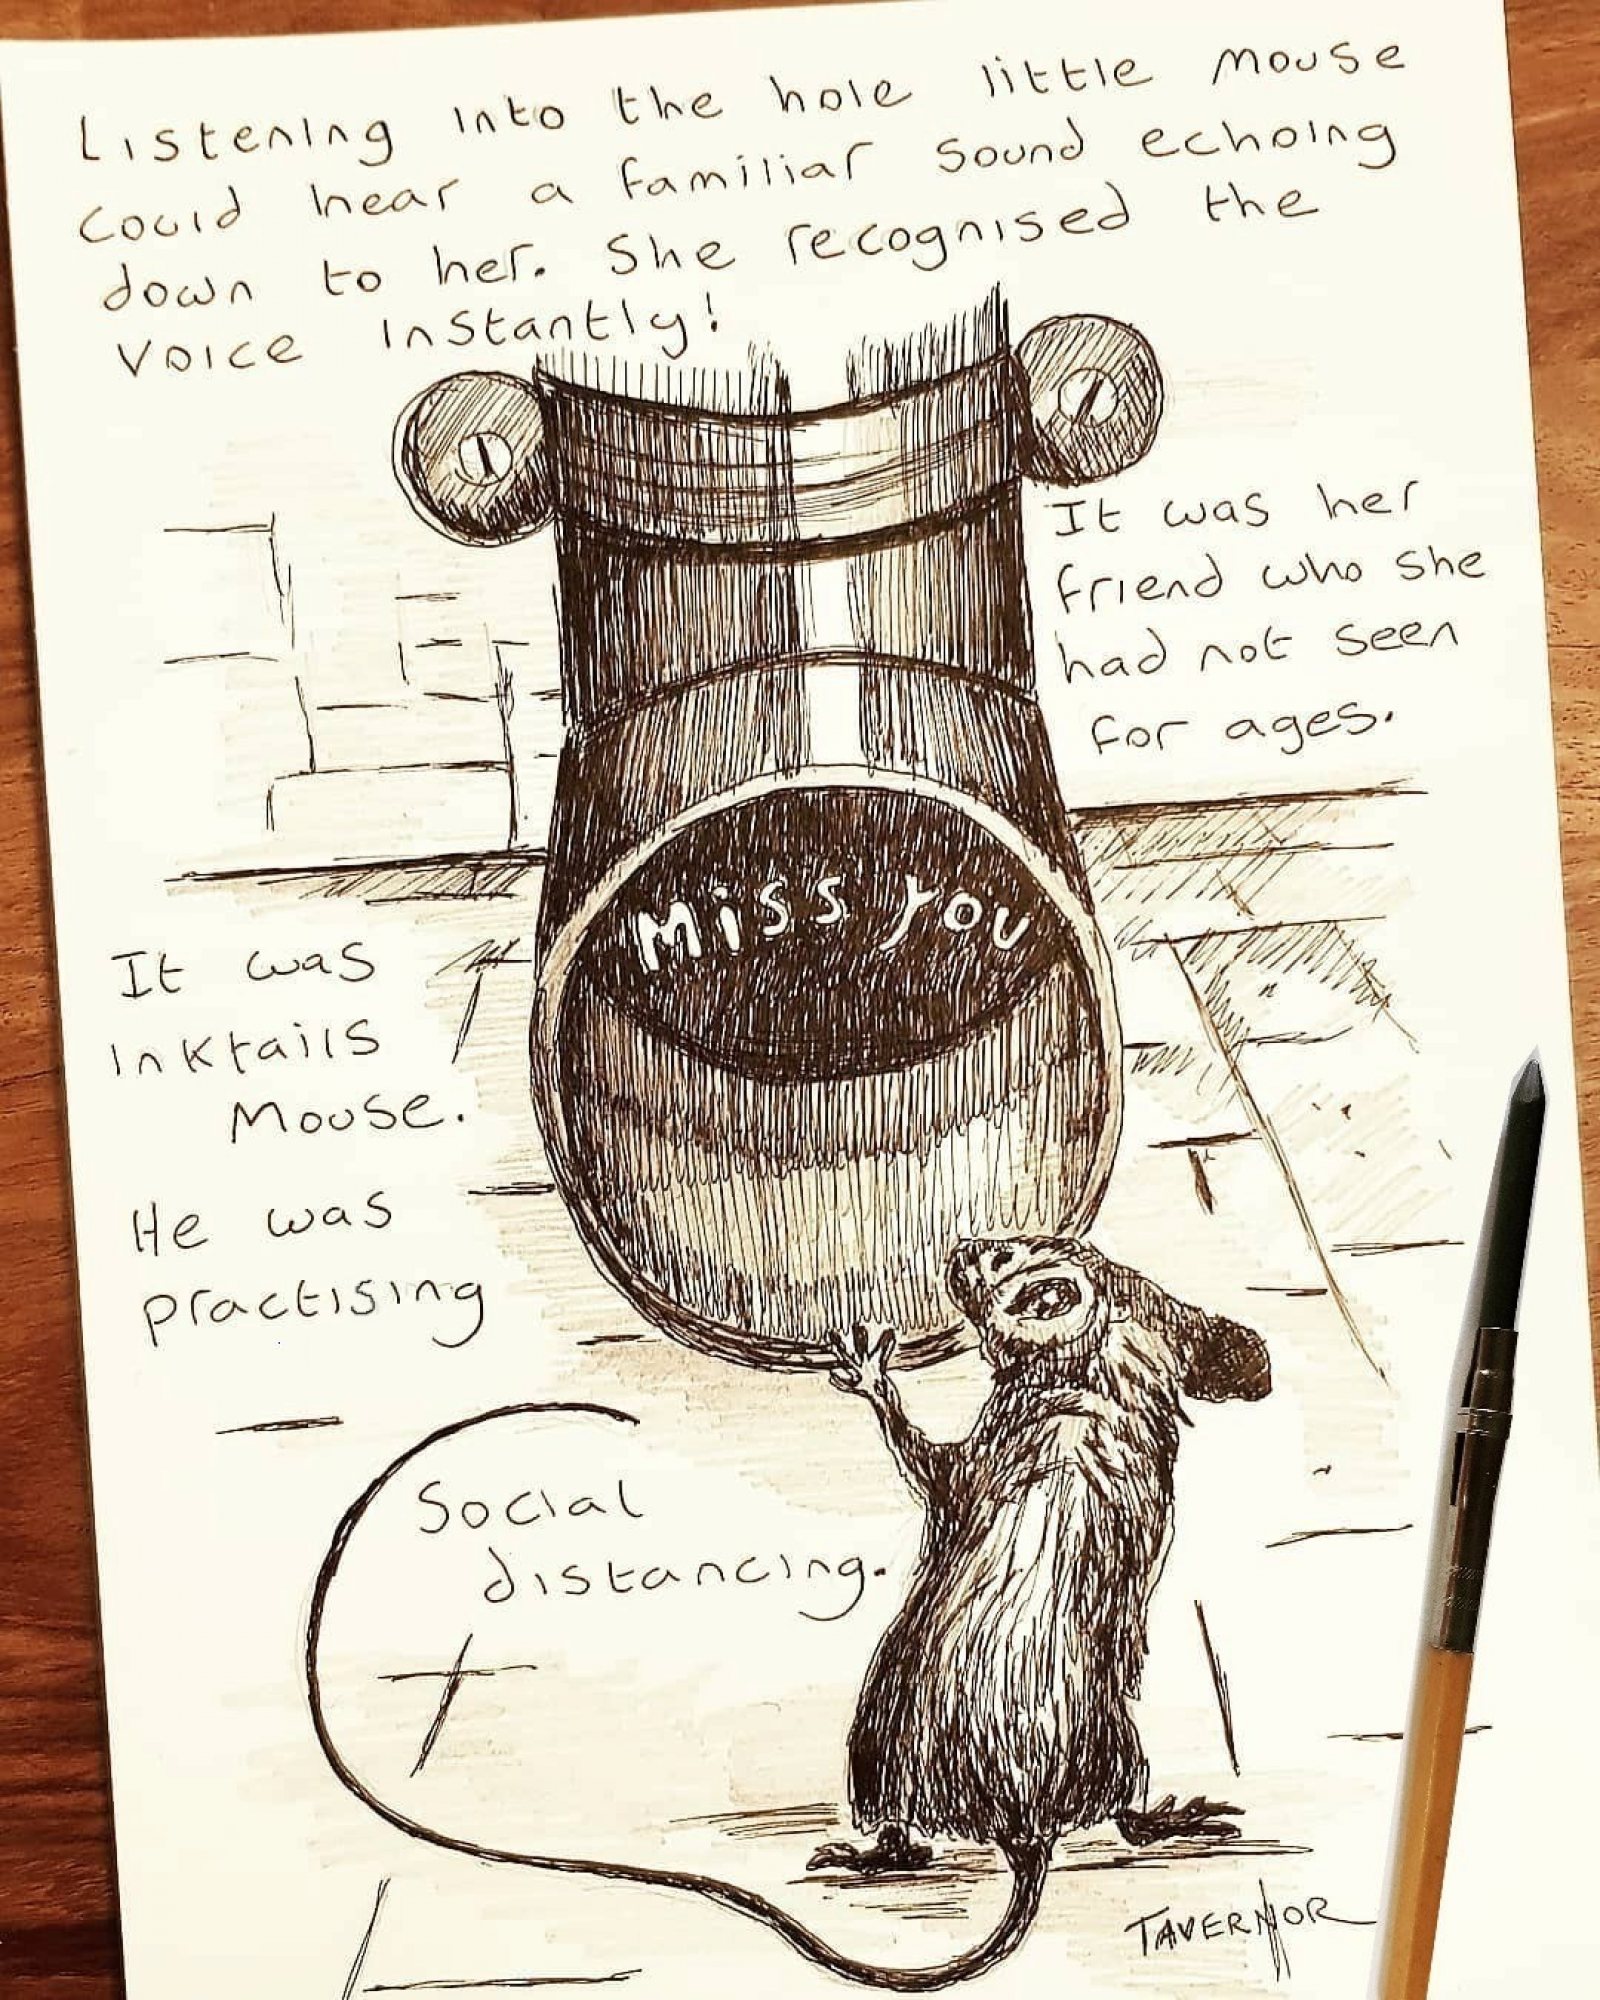 Listening into the hole little mouse
could hear a familiar sound echoing
down to her. She recognised the
voice instantly!
It was her
friend who she
had not seen
for ages.
Miss you
It was
inktails
mouse.
He was
practising
Social
distancing.
TAVERNOR